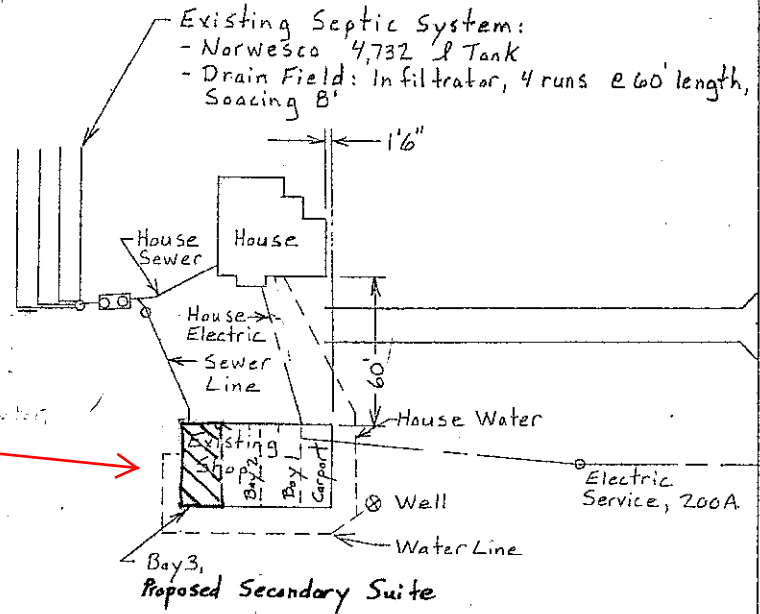 Existing Septic System:
- Norwesco 4,732 l Tank
- Drain Field: Infiltrator, 4 runs @ 60' length,
Spacing 8'
1'6"
House
Sewer
House
House
Electric
Sewer
Line
60'
House Water
Existing
Shop
Bay 2
Bay 1
Carport
Electric
Service, 200A
Well
Water Line
Bay 3,
Proposed Secondary Suite